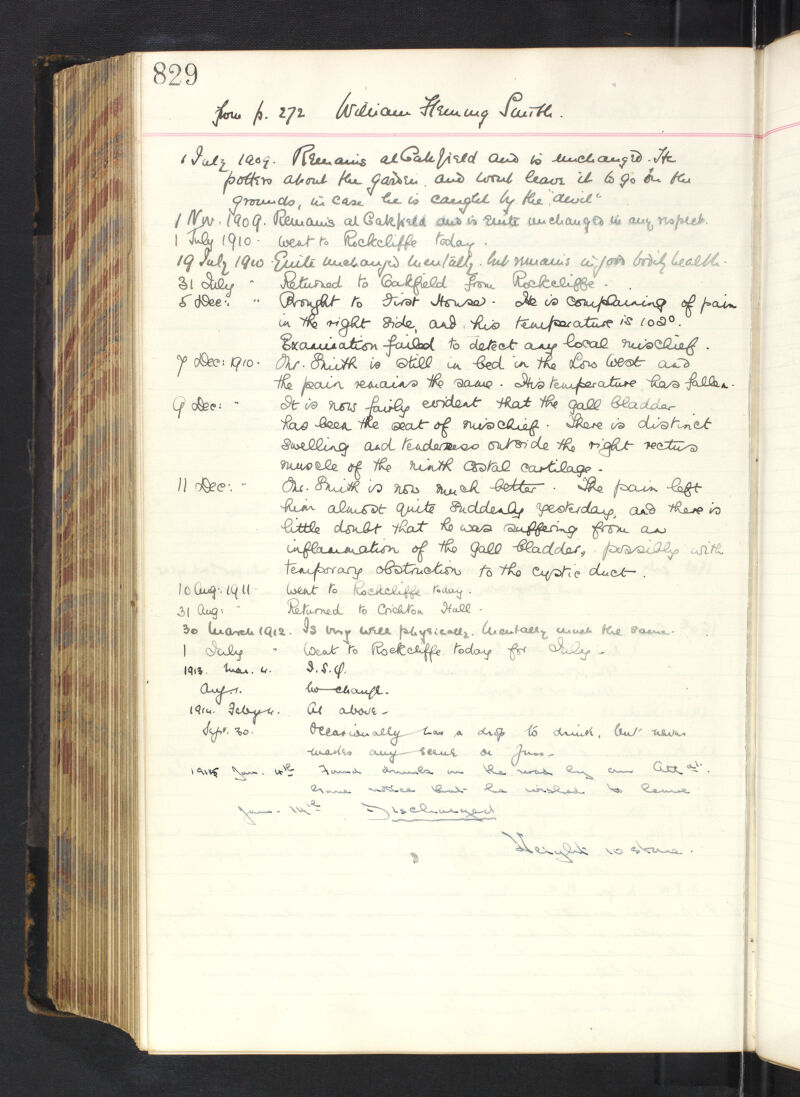 829
from p. 272 William Fleming Smith.
1 July 1909. Remains at Oakfield and is unchanged. He
potters about the garden, and wont leave it to go on the
grounds, in case he is caught by the "devil"
1 Nov. 1909. Remains at Oakfield and is quite unchanged in any respect.
1 July 1910. Went to Rockcliffe today.
19 July 1910 Quite unchanged mentally. but remains in good bodily health.
31 July " Returned to Oakfield from Rockcliffe.
5 Dec: " Brought to First House. He is complaining of pain
in the right side, and his temperature is 102°.
Examination failed to detect any local mischief.
7 Dec: 1910. Mr. Smith is still in bed in the Low West and
the pain remains the same. His temperature has fallen.
9 Dec: " It is now fairly evident that the gall bladder
has been the seat of mischief. There is distinct
swelling and tenderness outside the right rectus
muscle of the ninth costal cartilage.
11 Dec: " Mr. Smith is now much better. The pain left
him almost quite suddenly yesterday, and there is
little doubt that he was suffering from an
inflammation of the gall bladder, possibly with
temporary obstruction to the cystic duct.
10 Aug: 1911. Went to Rockcliffe today.
31 Aug: " Returned to Crichton Hall.
30 March 1912. Is very well physically. Mentally much the same.
1 July " Went to Rockcliffe today for July.
1913. Mar. 4. I.S.Q.
Aug. 1. No change.
1914. Feby 4. As above.
Sept. 30. Occasionally has a drop to drink, but never
makes any scene or fuss.
1915 Jan. 4th Found drunk on the road by an Attdt.
Gave notice that he wished to leave
Jan. 14th Discharged
Weight 10 stone.